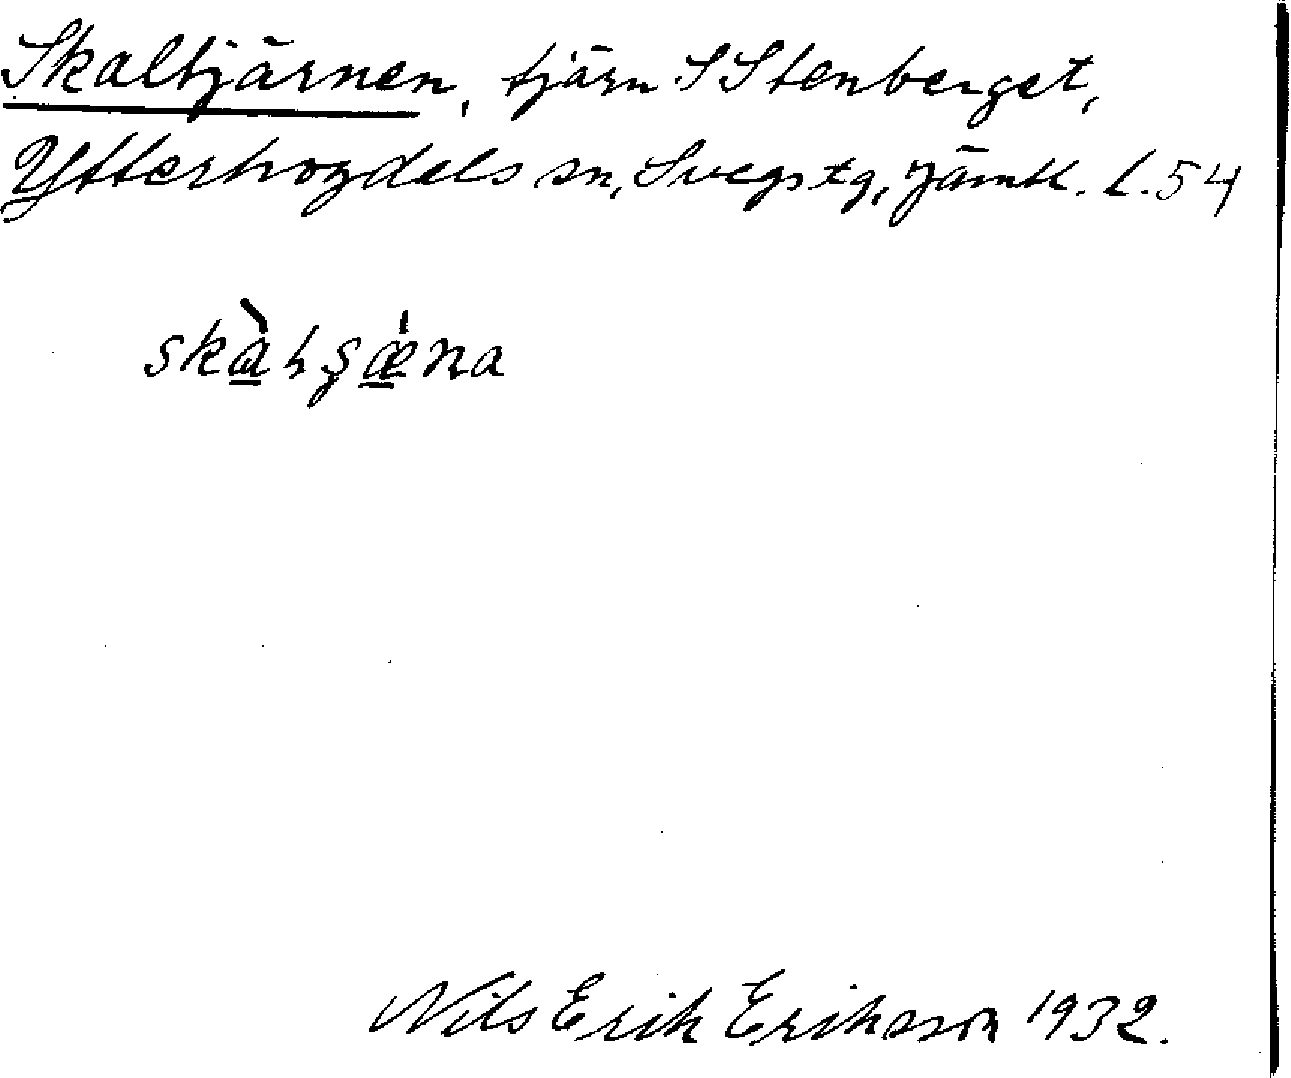 Skaltjärnen, tjärn S Stenberget,
Ytterhogdals sn, Svegs tg, Jämtl. l. 54
Nils Erik Eriksson 1932.